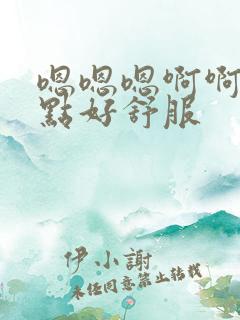 嗯嗯嗯啊啊
點好舒服
伊小謝
未经同意禁止转载